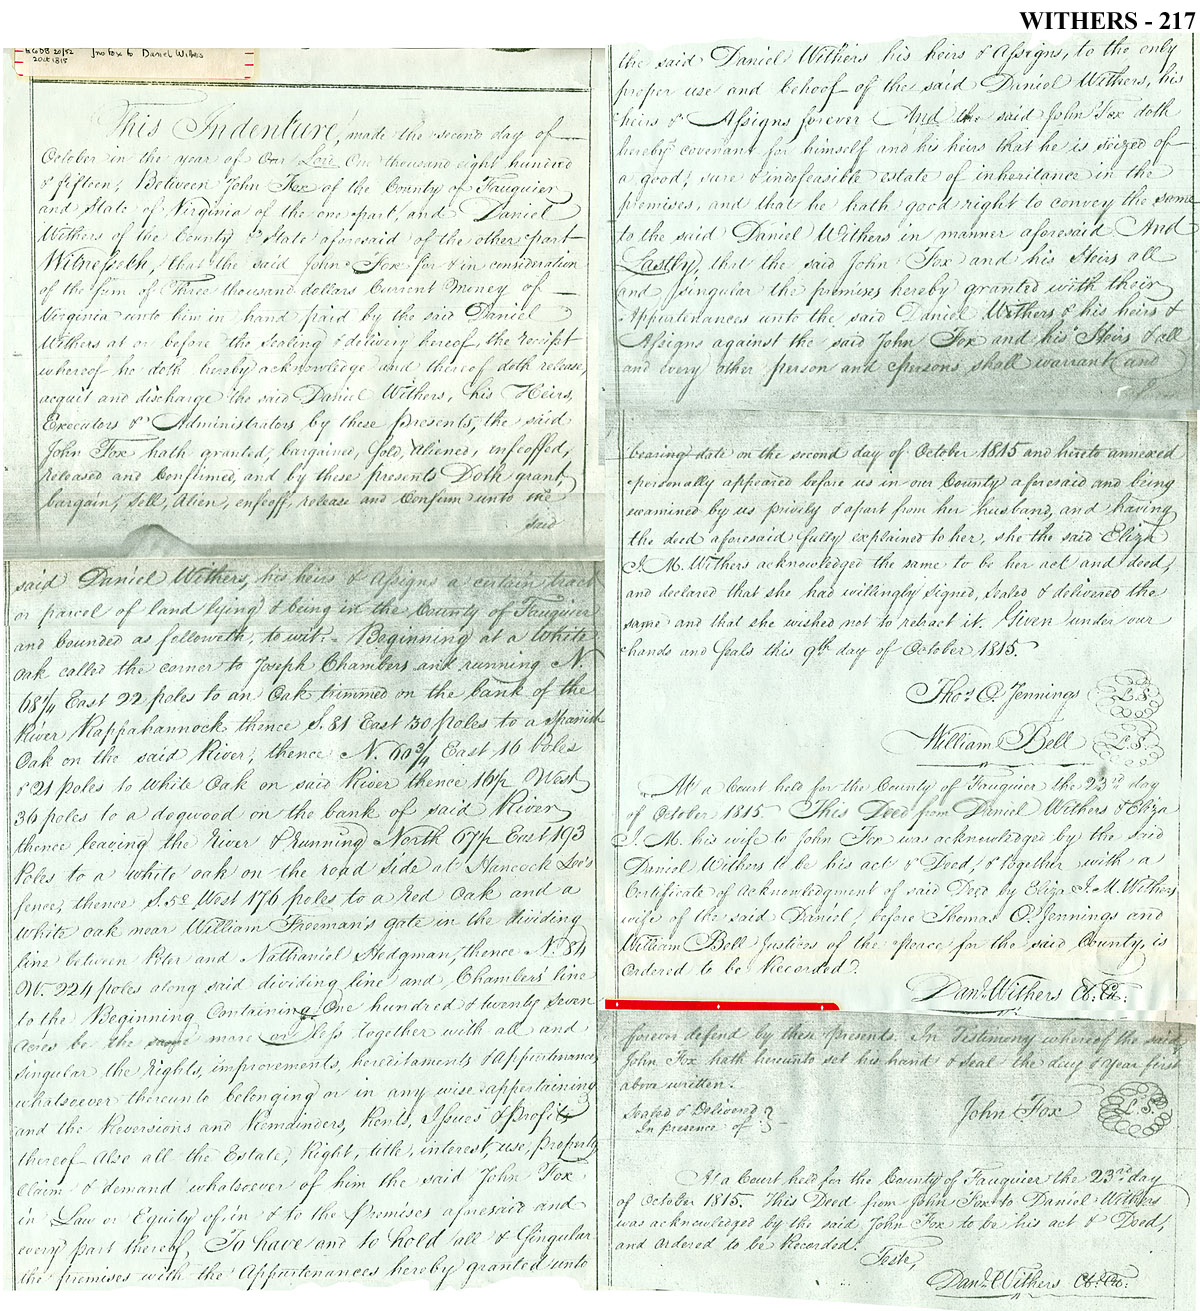 WITHERS - 217
20/52 Jno Fox to Daniel Withers
2 Oct 1815
This Indenture, made the second day of
October in the year of Our Lord One thousand eight hundred
& fifteen, Between John Fox of the County of Fauquier
and State of Virginia of the one part, and Daniel
Withers of the County & State aforesaid of the other part
Witnesseth, that the said John Fox for & in consideration
of the sum of Three thousand dollars Current Money of
Virginia unto him in hand paid by the said Daniel
Withers at or before the Sealing & delivery hereof, the receipt
whereof he doth hereby acknowledge and thereof doth release,
acquit and discharge the said Daniel Withers, his Heirs,
Executors & Administrators by these presents, the said
John Fox hath granted, bargained, Sold, Aliened, enfeoffed,
released and Confirmed, and by these presents Doth grant,
bargain, Sell, Alien, enfeoff, release and Confirm unto the
said
said Daniel Withers, his heirs & Assigns a certain tract
or parcel of land lying & being in the County of Fauquier
and bounded as followeth, to wit:- Beginning at a White
Oak called the corner to Joseph Chambers and running N.
68 1/4 East 22 poles to an Oak trimmed on the bank of the
River Rappahannock thence S. 81 East 30 poles to a Spanish
Oak on the said River, thence N. 60 3/4 East 16 Poles
& 21 poles to White Oak on said River thence 16 1/2 West
36 poles to a dogwood on the bank of said River
thence leaving the River & Running North 67 1/2 East 193
Poles to a white oak on the road side at Hancock Lee's
fence, thence S. 5° West 176 poles to a red Oak and a
White oak near William Freeman's gate in the dividing
line between Peter and Nathaniel Hedgman, thence N. 84
W. 224 poles along said dividing line and Chambers' line
to the Beginning Containing One hundred & twenty Seven
Acres be the same more or less together with all and
singular the Rights, improvements, hereditaments & Appurtenances
whatsoever thereunto belonging or in any wise appertaining
and the Reversions and Remainders, Rents, Issues & Profits
thereof Also all the Estate, Right, title, interest, use, property
Claim & demand whatsoever of him the said John Fox
in Law or Equity of in & to the Premises aforesaid and
every part thereof, To have and to hold all & Singular
the premises with the Appurtenances hereby granted unto
the said Daniel Withers his heirs & Assigns, to the only
proper use and behoof of the said Daniel Withers, his
heirs & Assigns forever And the said John Fox doth
hereby covenant for himself and his heirs that he is seized of
a good, sure & indefeasible estate of inheritance in the
premises, and that he hath good right to convey the same
to the said Daniel Withers in manner aforesaid And
Lastly, that the said John Fox and his Heirs all
and singular the premises hereby granted with their
Appurtenances unto the said Daniel Withers & his heirs &
Assigns against the said John Fox and his Heirs & all
and every other person and persons shall warrant and
bearing date on the second day of October 1815 and hereto annexed
personally appeared before us in our County aforesaid and being
examined by us privily & apart from her husband, and having
the deed aforesaid fully explained to her, she the said Eliza
I. M. Withers acknowledged the same to be her act and deed,
and declared that she had willingly signed, sealed & delivered the
same and that she wished not to retract it. Given under our
hands and Seals this 9th day of October 1815.
Thos. O. Jennings L.S.
William Bell L.S.
At a Court held for the County of Fauquier the 23rd day
of October 1815. This Deed from Daniel Withers & Eliza
I. M. his wife to John Fox was acknowledged by the said
Daniel Withers to be his act & Deed, & together with a
Certificate of Acknowledgment of said Deed by Eliza I. M. Withers
wife of the said Daniel, before Thomas O. Jennings and
William Bell Justices of the Peace for the said County, is
ordered to be Recorded.
Danl. Withers Cl. Cu.
forever defend by these Presents. In Testimony whereof the said
John Fox hath hereunto set his hand & Seal the day & Year first
above written.
Sealed & Delivered John Fox L.S.
In presence of
At a Court held for the County of Fauquier the 23rd day
of October 1815. This Deed from John Fox to Daniel Withers
was acknowledged by the said John Fox to be his act & Deed,
and ordered to be Recorded.
Teste,
Danl. Withers Cl. Cu.